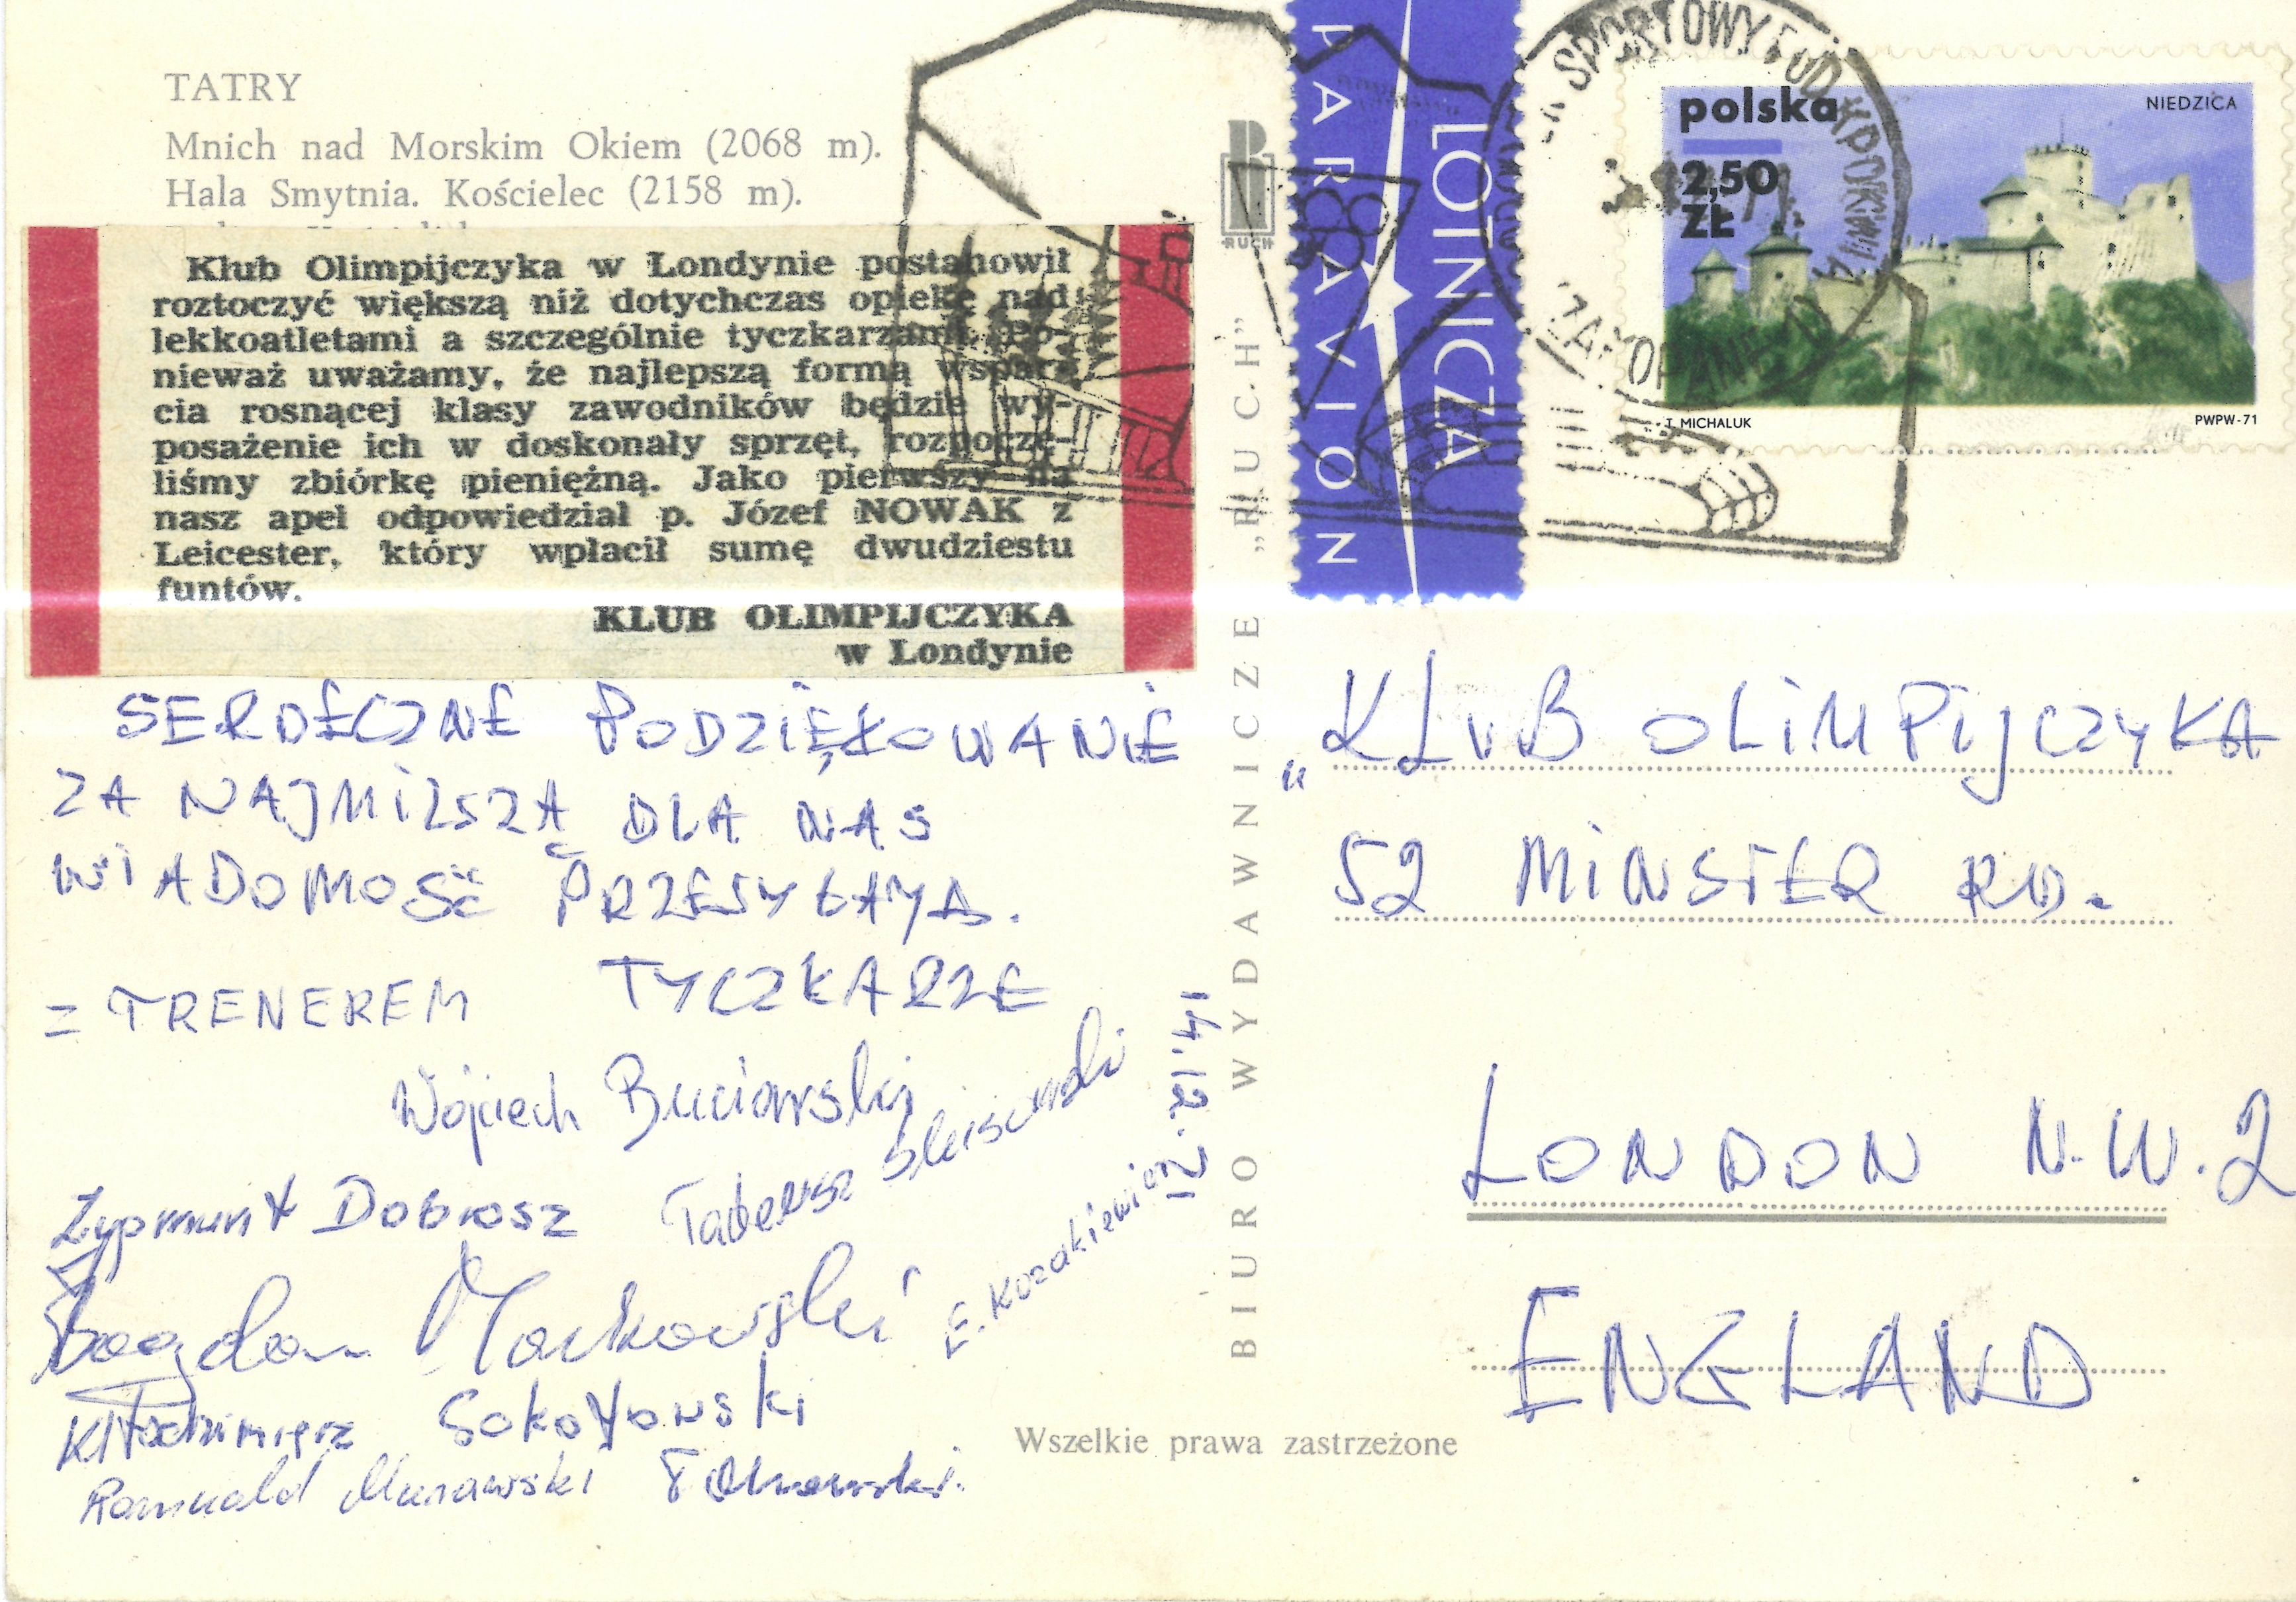 TATRY
Mnich nad Morskim Okiem (2068 m).
Hala Smytnia. Kościelec (2158 m).
Klub Olimpijczyka w Londynie postanowił
roztoczyć większą niż dotychczas opiekę nad
lekkoatletami a szczególnie tyczkarzami. Po-
nieważ uważamy, że najlepszą formą wspar-
cia rosnącej klasy zawodników będzie wy-
posażenie ich w doskonały sprzęt, rozpoczę-
liśmy zbiórkę pieniężną. Jako pierwszy na
nasz apel odpowiedział p. Józef NOWAK z
Leicester, który wpłacił sumę dwudziestu
funtów.
KLUB OLIMPIJCZYKA
w Londynie
SERDECZNE PODZIĘKOWANIE
ZA NAJMILSZĄ DLA NAS
WIADOMOŚĆ PRZESYŁAJĄ.
TYCZKARZE
Z TRENEREM
Wojciech Buciarski
Zygmunt Dobrosz
Tadeusz
Bogdan Markowski
E. Kozakiewicz
Włodzimierz Sokołowski
Romuald Murawski
14.12.71
BIURO WYDAWNICZE „RUCH"
RUCH
PAR AVION
LOTNICZA
SPORTOWY
polska
2,50
ZŁ
NIEDZICA
T. MICHALUK
PWPW-71
„KLUB OLIMPIJCZYKA
52 MINSTER RD.
LONDON N.W.2
ENGLAND
Wszelkie prawa zastrzeżone